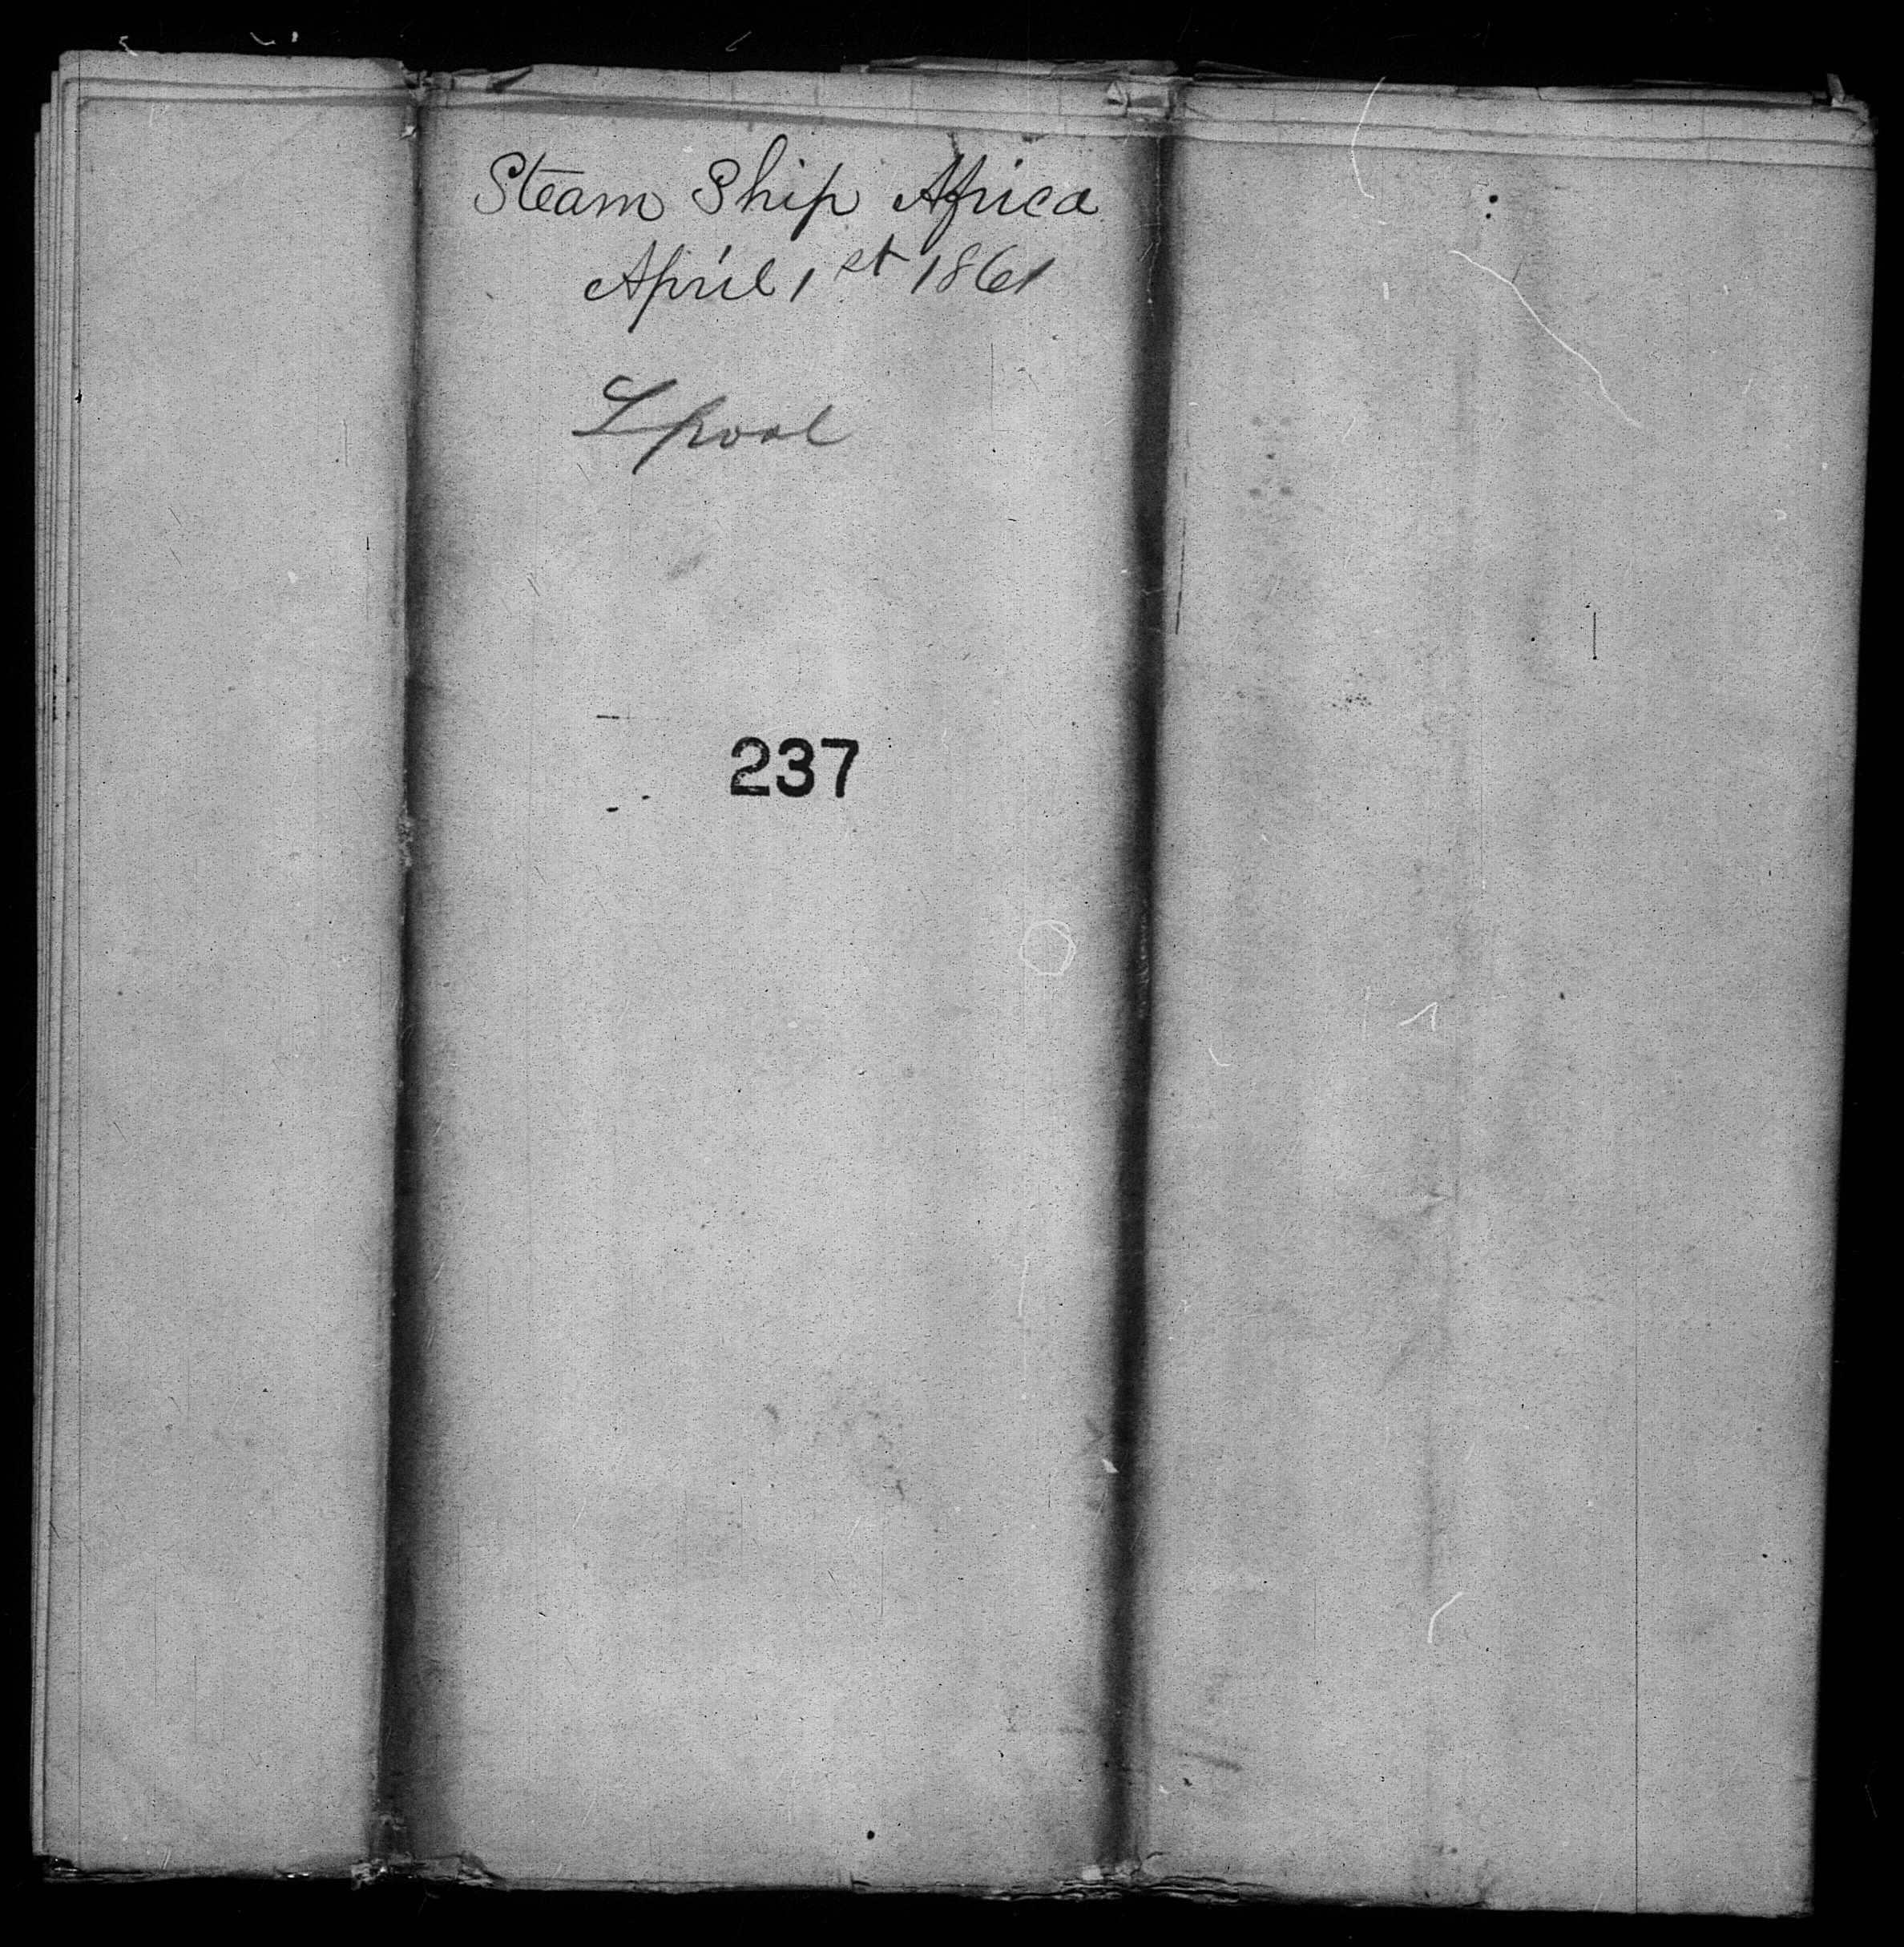 Steam Ship Africa
April 1st 1861
Lpool
237